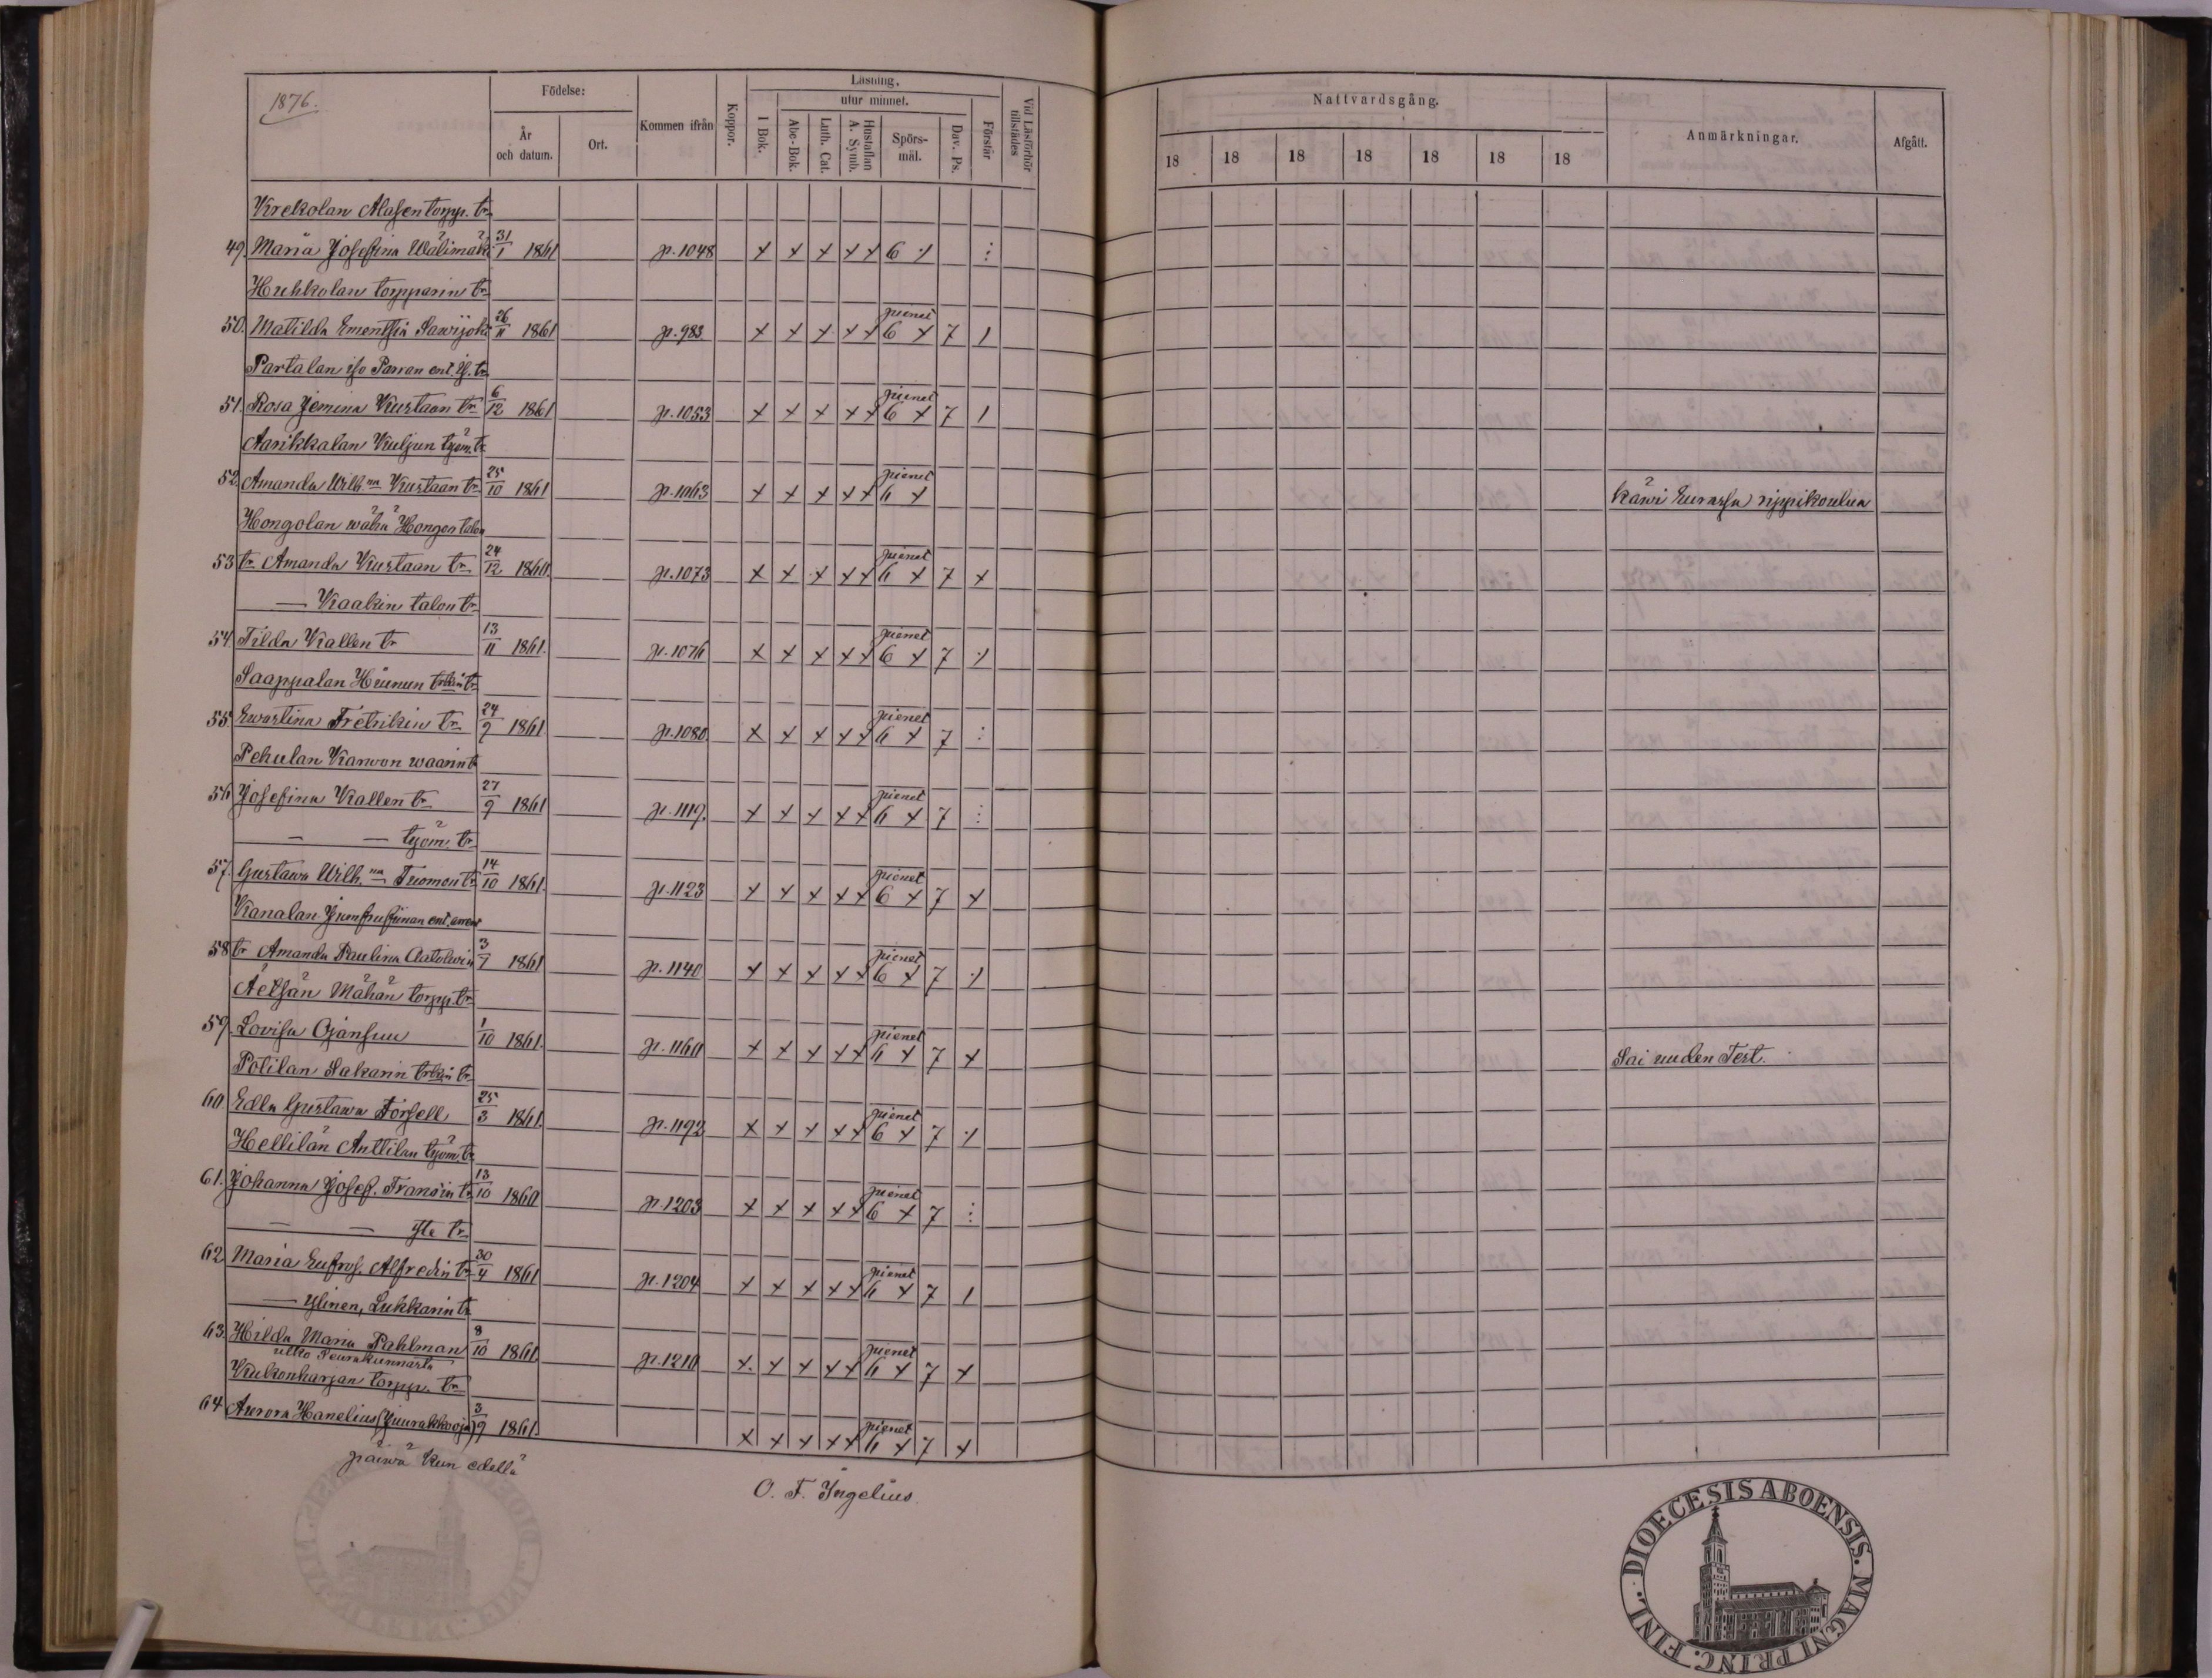 1876.
Födelse:
År
och datum.
Ort.
Kommen ifrån
Koppor.
Läsning.
utur minnet.
I Bok.
Abc-Bok.
Luth. Cat.
Hustaflan
A. Symb.
Spörs-
mål.
Dav. Ps.
Förstår
Vid Läsförhör
tillstädes
Krekolan Alasen torpp. tr.
49. Maria Josefina Wälimäki 31/1 1861 p. 1048 x x x x x 6 ⁒ ⋮
Huhkolan torpparin tr.
50. Matilda Ementsia Sawijoki 26/11 1861 p. 983. x x x x x pienet 6 x 7 1
Partalan iso Parran ent. is. tr.
51. Rosa Jemina Kustaan tr. 6/12 1861 p. 1053 x x x x x pienet 6 x 7 1
Aarikkalan Kuljun työm. tr.
52. Amanda Wilh:na Kustaan tr. 25/10 1861 p. 1063 x x x x x pienet 6 x
Hongolan wähä Hongon talon
53 tr. Amanda Kustaan tr. 24/12 1860. p. 1073 x x x x x pienet 6 x 7 x
— Kaakin talon tr.
54. Tilda Kallen tr. 13/11 1861. p. 1076 x x x x x pienet 6 x 7 ⁒
Saappalan Hiunun tr.
55. Ewastina Fretrikin tr. 24/9 1861 p. 1080 x x x x x pienet 6 x 7 ⋮
Pehulan Karwon waarin tr.
56. Josefina Kallen tr. 27/9 1861 p. 1119. x x x x x pienet 6 x 7 ⋮
— — työm. tr.
57. Gustawa Wilh.na Tuomon tr. 14/10 1861. p. 1123 x x x x x pienet 6 x 7 x
Kanalan ent.
58 tr. Amanda Paulina Aatolwin 3/7 1861 p. 1140 x x x x x pienet 6 x 7 ⁒
Äetsän Mähän torpp. tr.
59. Lovisa Ojansuu 1/10 1861. p. 1160 x x x x x pienet 6 x 7 x
Potilan Sakarin tr.
60. Edla Gustawa Forsell 25/3 1861. p. 1192 x x x x x pienet 6 x 7 ⁒
Hellilän Anttilan työm. tr.
61. Johanna Josef. Fransin tr. 13/10 1860 p. 1203 x x x x x pienet 6 x 7 ⋮
— — tr.
62 Maria Eufros. Alfredin tr. 30/4 1861 p. 1204 x x x x x pienet 6 x 7 1
— Ylinen, Lukkarin tr.
63. Hilda Maria Pahlman 8/10 1861. p. 1210 x. x x x x pienet 6 x 7 x
ulko Seurakunnasta
Kukonharjan torpp. tr.
64 Aurora Hanelius (Juurakkooja) 3/9 1861. x x x x x pienet 6 x 7 x
päiwä kun edellä
O. F. Ingelius.
Nattvardsgång.
18 18 18 18 18 18 18
Anmärkningar.
Afgått.
käwi Eurassa rippikoulua
Sai uuden Test.
DIOECESIS ABOENSIS. MAGNI PRINC. FINL.